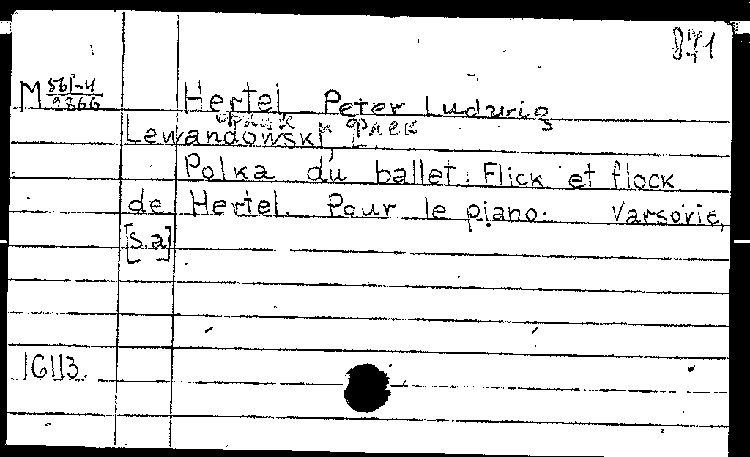 871
M 561-4/9866 Hertel Peter Ludwig
Lewandowski,
Polka du ballet: Flick et flock
de Hertel. Pour le piano. Varsovie,
[S.a]
16113.